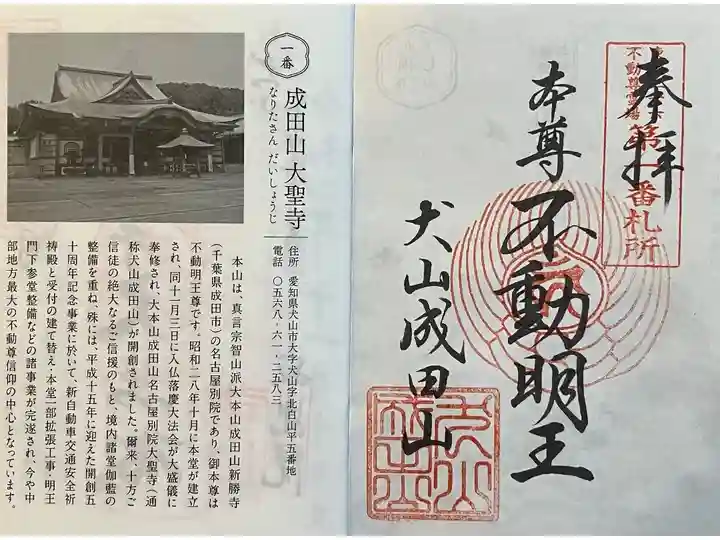 一番
成田山 大聖寺
なりたさん だいしょうじ
住所 愛知県犬山市大字犬山字北白山平五番地
電話 〇五六八・六一・二五八三
本山は、真言宗智山派大本山成田山新勝寺
(千葉県成田市)の名古屋別院であり、御本尊は
不動明王尊です。昭和二八年十月に本堂が建立
され、同十一月三日に入仏落慶大法会が大盛儀に
奉修され、大本山成田山名古屋別院大聖寺(通
称犬山成田山)が開創されました。爾来、十方ご
信徒の絶大なるご信援のもと、境内諸堂伽藍の
整備を重ね、殊には、平成十五年に迎えた開創五
十周年記念事業に於いて、新自動車交通安全祈
祷殿と受付の建て替え・本堂一部拡張工事・明王
門下参堂整備などの諸事業が完遂され、今や中
部地方最大の不動尊信仰の中心となっています。
奉拝
不動尊霊場
第一番札所
本尊不動明王
犬山成田山